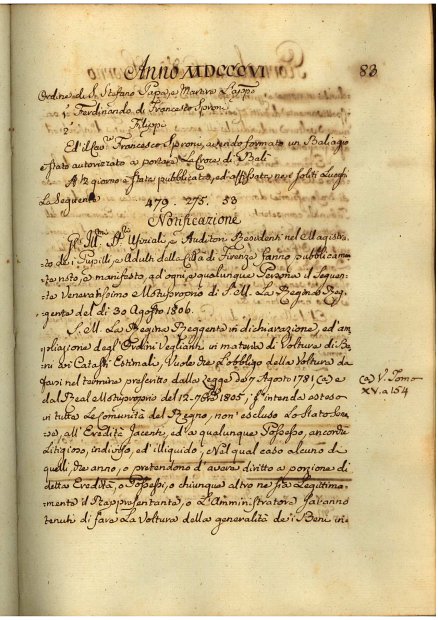 Anno MDCCCVI
83
Ordine di S. Stefano Papa, e Martire
1 Ferdinando di Francesco Sproni
2 Filippi
Ed il Francesco Sproni, avendo formato un Baliagio
è stato autorizato a portare La Croce di Balì
A' 12 giorno è stata pubblicata, ed affissata ne' soliti Luoghi
La Seguente
479. 275. 53
Notificazione
Gl' Ill.mi SS.ri Ufiziali, e Auditori Residenti nel Magistra-
to de' Pupilli, e Adulti della Città di Firenze fanno pubblicame-
nte noto, e manifesto, ad ogni, e qualunque Persona il Seguen-
te Veneratissimo e Motuproprio di S. M. La Regina Reg-
gente del dì 30 Agosto 1806.
S. M. La Regina Reggente in dichiarazione, ed am-
pliazione degl' Ordini Veglianti in materia di Volture di Be-
ni ai Catasti Estimali, Vuole che L'obbligo della Voltura da
farsi nel termine prescritto dalla Legge de' 7 Agosto 1781 (a) e
dal Real Motuproprio del 12 7bre 1805, s'intenda esteso
in tutte Le Comunità del Regno, non escluso Lo Stato Sene-
se, all' Eredità Jacenti, ed a qualunque Possesso, ancorchè
Litigioso, indiviso, ed illiquido, Nel qual caso alcuno di
quelli che anno, o pretendono d'avere diritto a porzione di
detta Eredità, o Possessi, o chiunque altro ne sia Legittima-
mente il Rappresentante, o L'Amministratore Saranno
tenuti di fare La Voltura della generalità dei Beni in-
(a) V. Tomo
XV. a 154